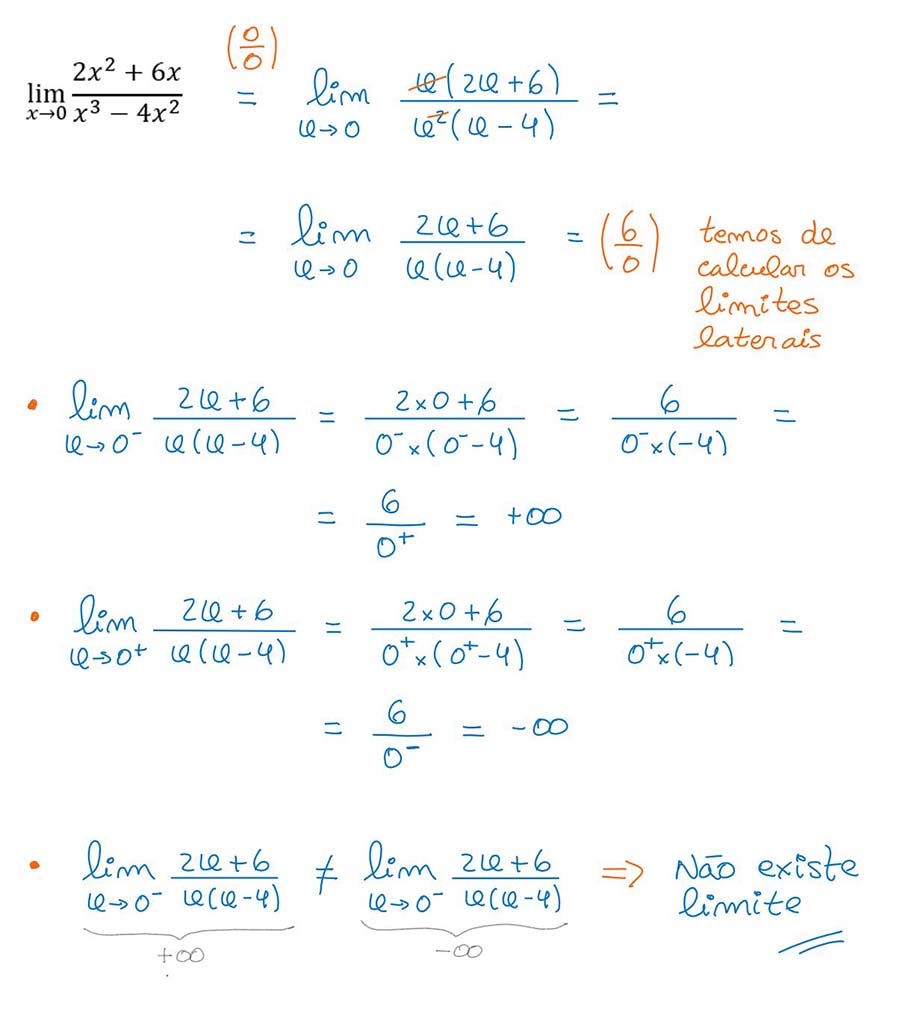 lim x→0 (2x² + 6x)/(x³ − 4x²) (0/0) = lim x→0 x(2x+6)/x²(x−4) =
= lim x→0 (2x+6)/x(x−4) = (6/0) temos de
calcular os
limites
laterais
• lim x→0⁻ (2x+6)/x(x−4) = (2×0+6)/0⁻×(0⁻−4) = 6/0⁻×(−4) =
= 6/0⁺ = +∞
• lim x→0⁺ (2x+6)/x(x−4) = (2×0+6)/0⁺×(0⁺−4) = 6/0⁺×(−4) =
= 6/0⁻ = −∞
• lim x→0⁻ (2x+6)/x(x−4) ≠ lim x→0⁻ (2x+6)/x(x−4) ⇒ Não existe
limite
+∞ −∞